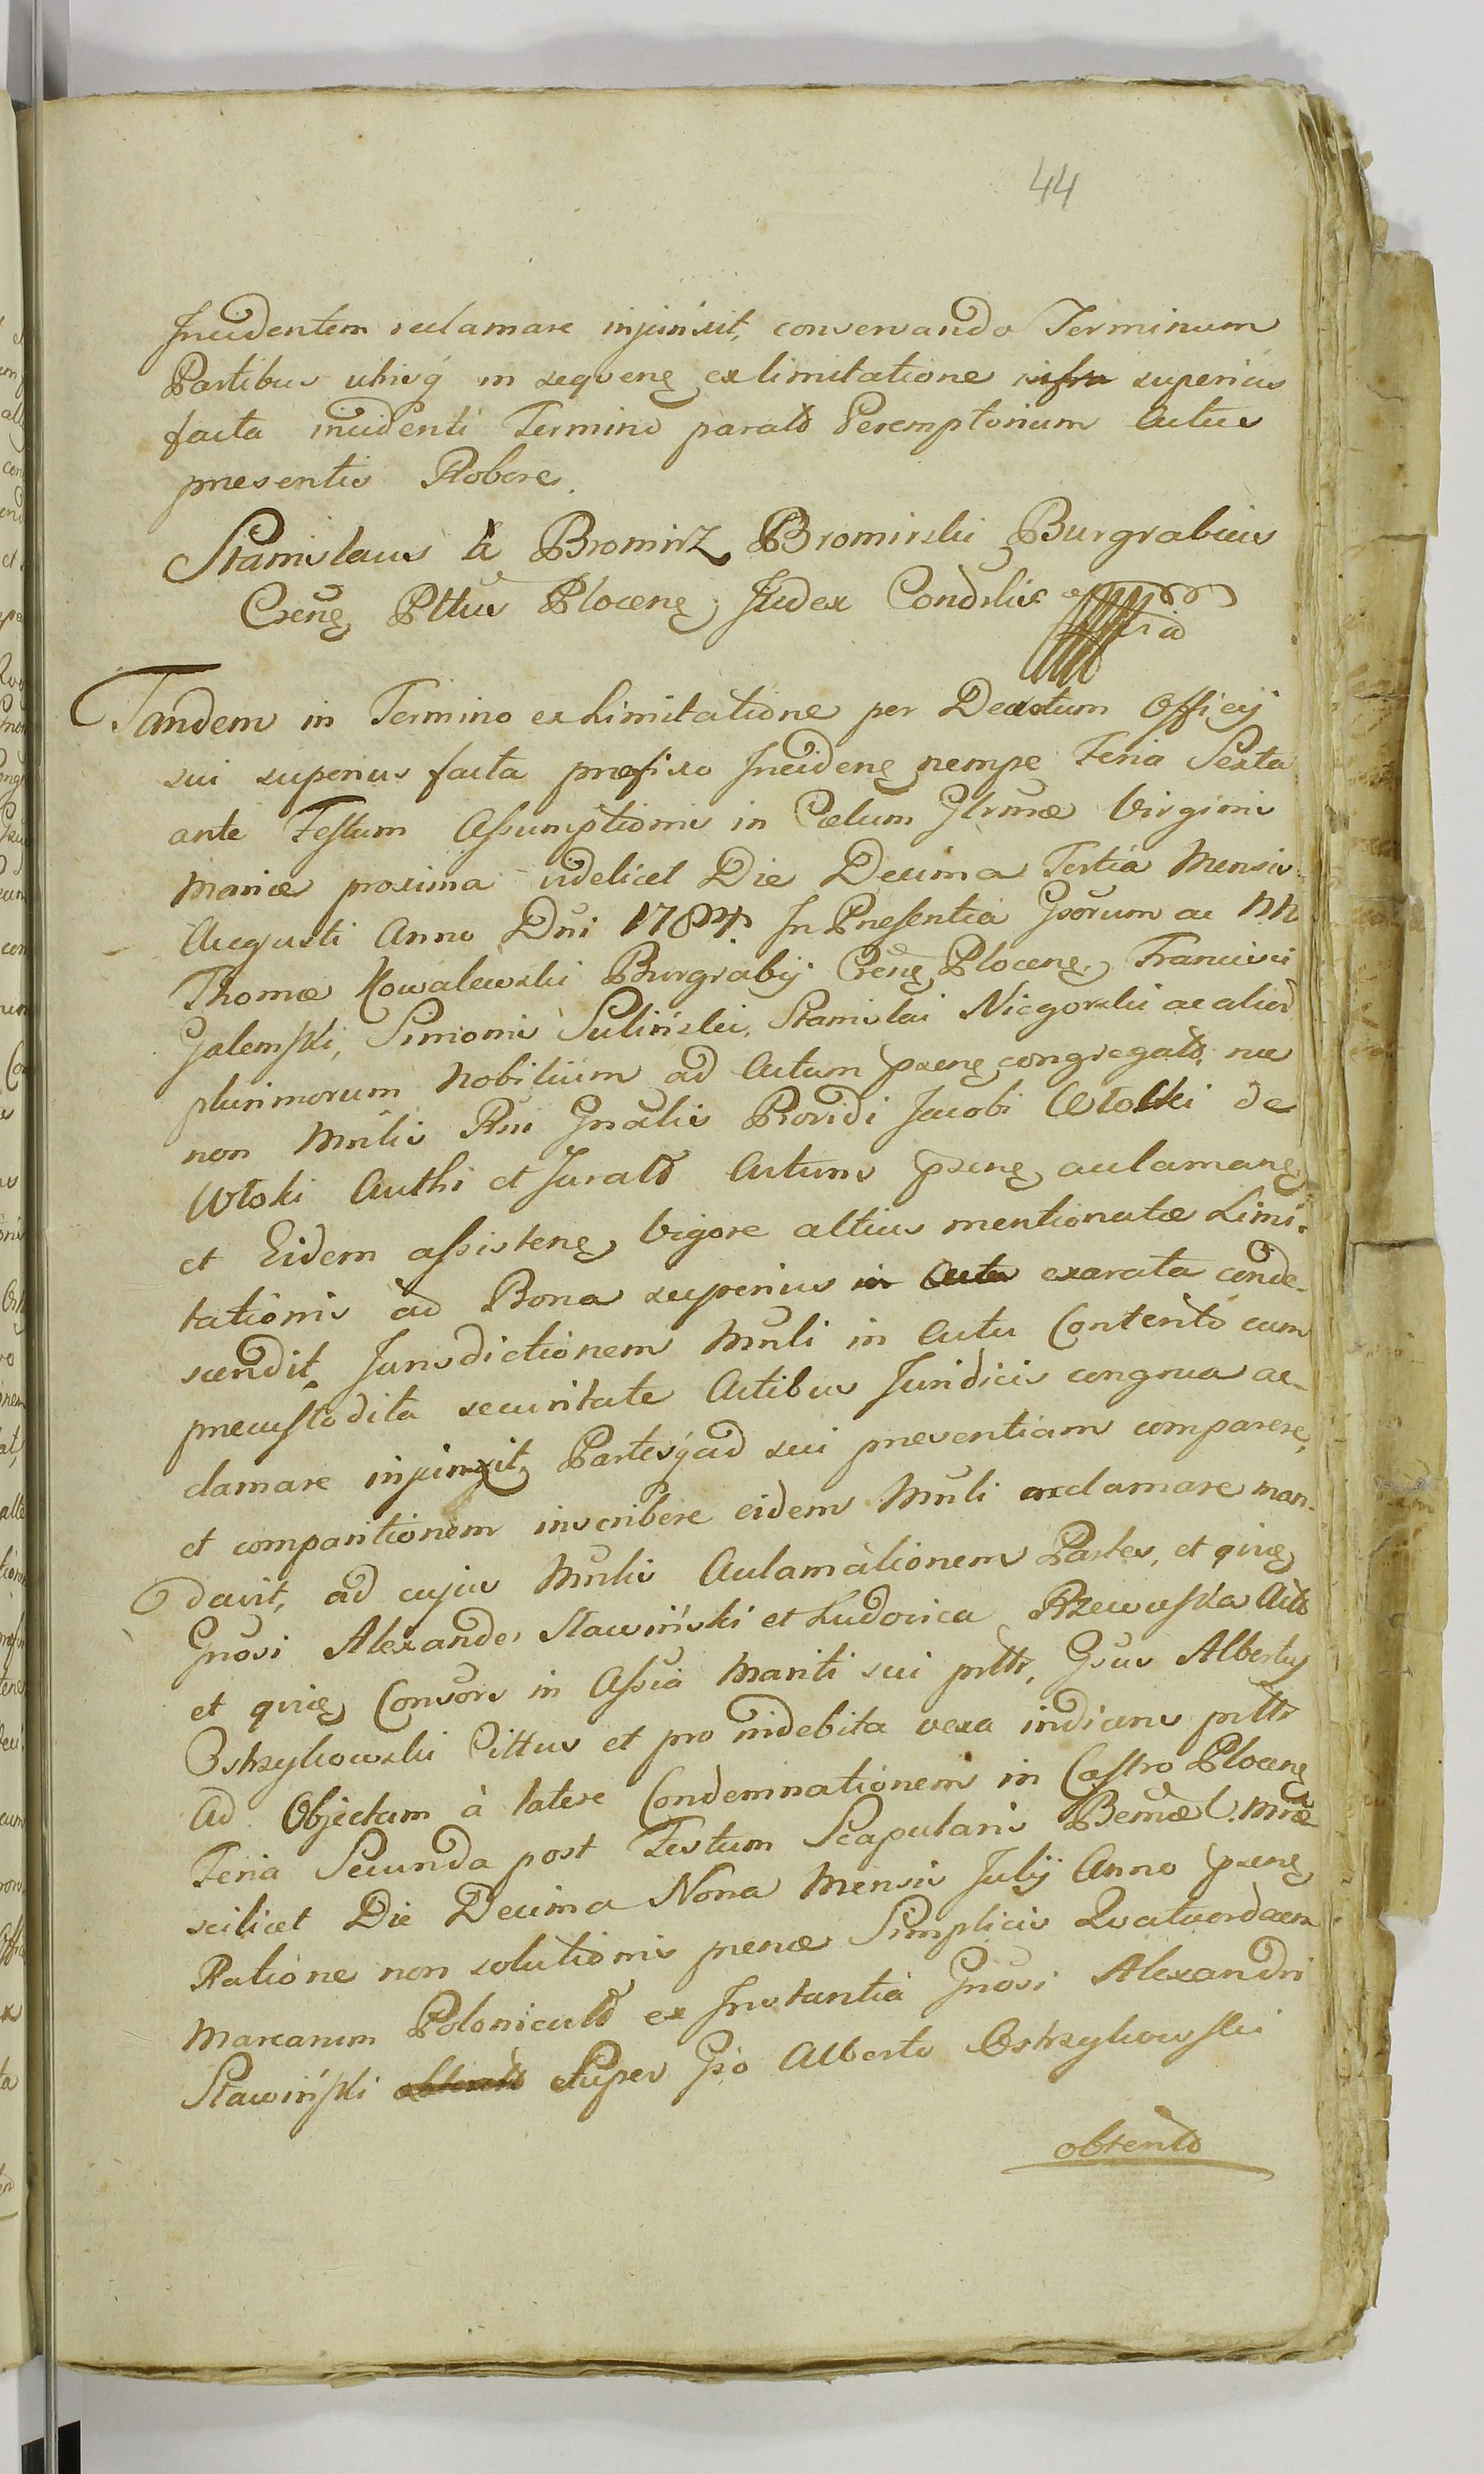 44
Incidentem reclamare injunxit, conservando Terminum
Partibus utrisq in seqvenę ex limitatione infra superius
facta incidenti Termino parato Peremptorium Actus
presentis Robore.
Stanislaus à Bromirz Bromirski Burgrabius
Crenę Pttus Plocenę Judex Condslis
Tandem in Termino ex Limitatione per Decretum Officij
sui superius facta prefixo Incidenę nempe Feria Sexta
ante Festum Assumptionis in Cœlum Glrmæ Virginis
Mariæ proxima videlicet Die Decima Tertia Mensis
Augusti Anno Dni 1784. In Presentia Gsorum ac NN
Thomæ Kowalewski Burgrabij Crenę Plocenę, Francisci
Galemski, Simonis Suliński, Stanislai Niegorski ac alior
plurimorum Nobilium ad Actum psenę congregato nec
non Mnlis Rni Gnalis Providi Jacobi Wloski de
Wloki Authi et Jurato Actum psenę acclamanę
et Eidem assistenę, Vigore altius mentionatæ Limi-
tationis ad Bona superius in Actu exarata conde-
scendit, Jurisdictionem Mnli in Actu Contento cum
precustodita securitate Actibus Juridicis congrua ac-
clamare injunxit, Partesq ad sui presentiam comparere,
et comparitionem inscribere eidem Mnli acclamare man-
davit, ad cujus Mnlis Acclamationem Partes, et qvię
Gnosi Alexander Sławiński et Ludovica Rzewuska Acto
et qvię Consors in Assia Mariti sui prttr, Gsus Albertus
Ostrzykowski Cittus et pro indebita vexa indicans prttr
Ad Objectam à latere Condemnationem in Castro Plocenę
Feria Secunda post Festum Scapularis Bemæ V. Mriæ
scilicet Die Decima Nona Mensis Julij Anno psenę
Ratione non solutionis penæ Simplicis Qvatuordecem
Marcarum Polonicalo ex Instantia Gnosi Alexandri
Sławiński Super Gso Alberto Ostrzykowski
obtento